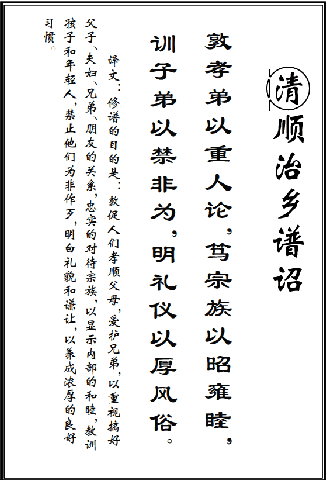 清顺治乡谱诏
敦孝弟以重人论，笃宗族以昭雍睦，
训子弟以禁非为，明礼仪以厚风俗。
译文：修谱的目的是：敦促人们孝顺父母，爱护兄弟，以重视搞好
父子、夫妇、兄弟、朋友的关系，忠实的对待宗族，以显示内部的和睦，教训
孩子和年轻人，禁止他们为非作歹，明白礼貌和谦让，以养成浓厚的良好
习惯。